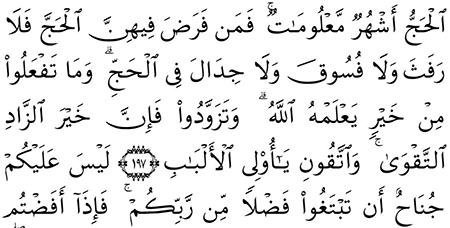 ٱلْحَجُّ أَشْهُرٌ مَّعْلُومَٰتٌ ۚ فَمَن فَرَضَ فِيهِنَّ ٱلْحَجَّ فَلَا
رَفَثَ وَلَا فُسُوقَ وَلَا جِدَالَ فِى ٱلْحَجِّ ۗ وَمَا تَفْعَلُوا۟
مِنْ خَيْرٍ يَعْلَمْهُ ٱللَّهُ ۗ وَتَزَوَّدُوا۟ فَإِنَّ خَيْرَ ٱلزَّادِ
ٱلتَّقْوَىٰ ۚ وَٱتَّقُونِ يَٰٓأُو۟لِى ٱلْأَلْبَٰبِ ﴿١٩٧﴾ لَيْسَ عَلَيْكُمْ
جُنَاحٌ أَن تَبْتَغُوا۟ فَضْلًا مِّن رَّبِّكُمْ ۚ فَإِذَآ أَفَضْتُم